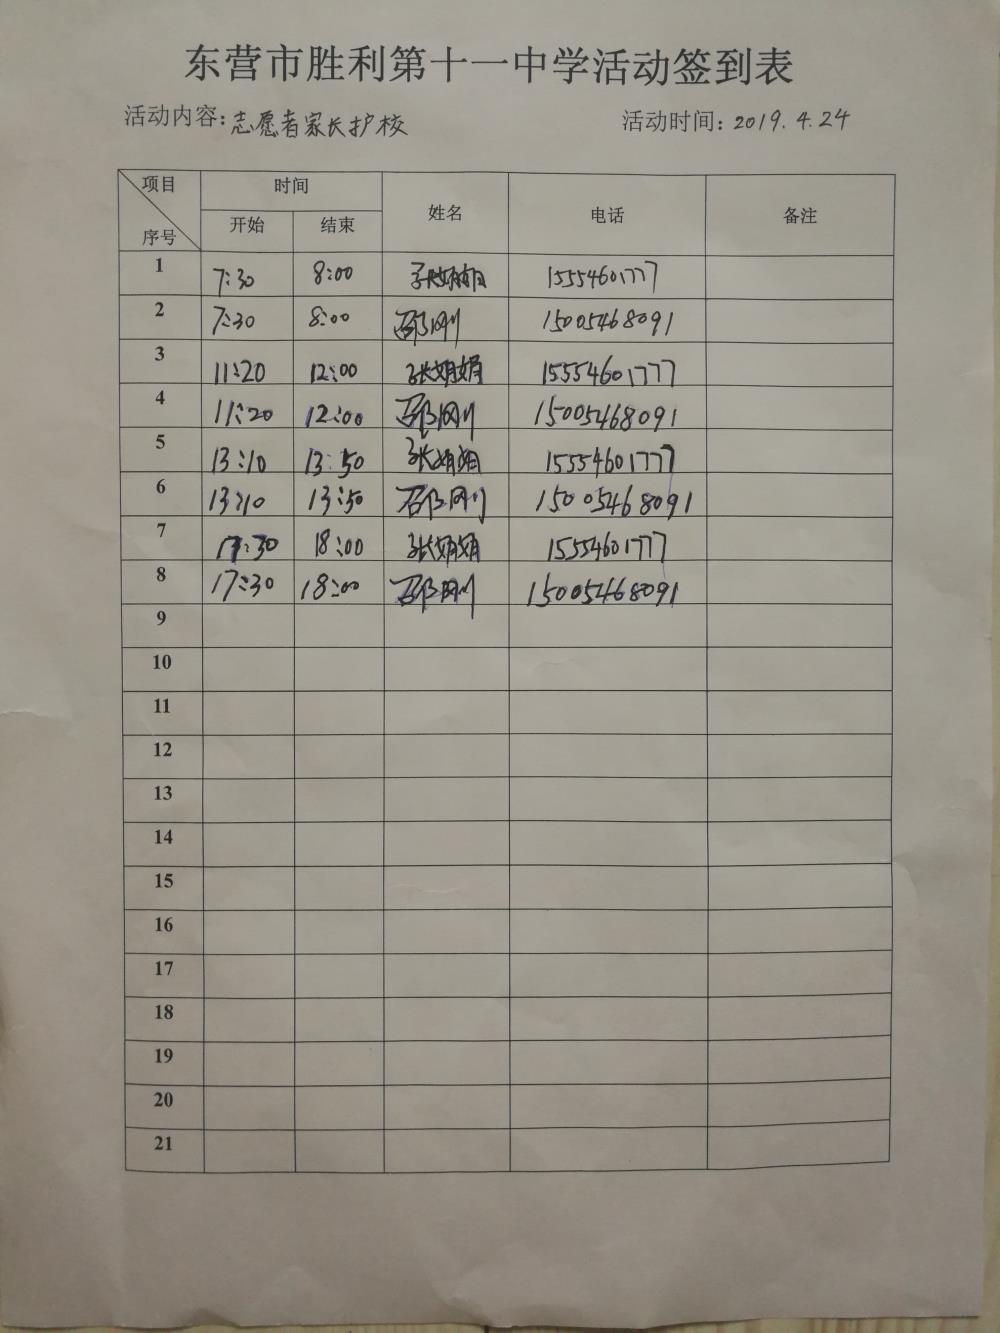 东营市胜利第十一中学活动签到表
活动内容：志愿者家长护校 活动时间：2019.4.24
项目 时间 姓名 电话 备注
序号 开始 结束
1 7:30 8:00 张娟娟 15554601777
2 7:30 8:00 邵刚 15005468091
3 11:20 12:00 张娟娟 15554601777
4 11:20 12:00 邵刚 15005468091
5 13:10 13:50 张娟娟 15554601777
6 13:10 13:50 邵刚 15005468091
7 17:30 18:00 张娟娟 15554601777
8 17:30 18:00 邵刚 15005468091
9
10
11
12
13
14
15
16
17
18
19
20
21